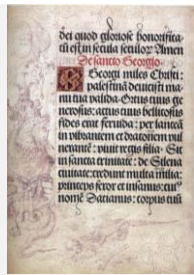 dei quod gloriose honorifica-
tū est in secula seculoꝝ Amen
De sancto Georgio.
Georgi miles Christi:
palestinā deuicisti ma-
nu tua valida. Ortus tuus ge-
nerosus: actus tuus bellicosus
fides erat feruida: per lanceā
in vibrantem et draconem vul-
nerantē: viuit regis filia. Sit
in sancta trinitate: de Silena
ciuitate: credunt multa milia:
princeps feror et insanus: cui'
nomē Datianus: corpus tuū